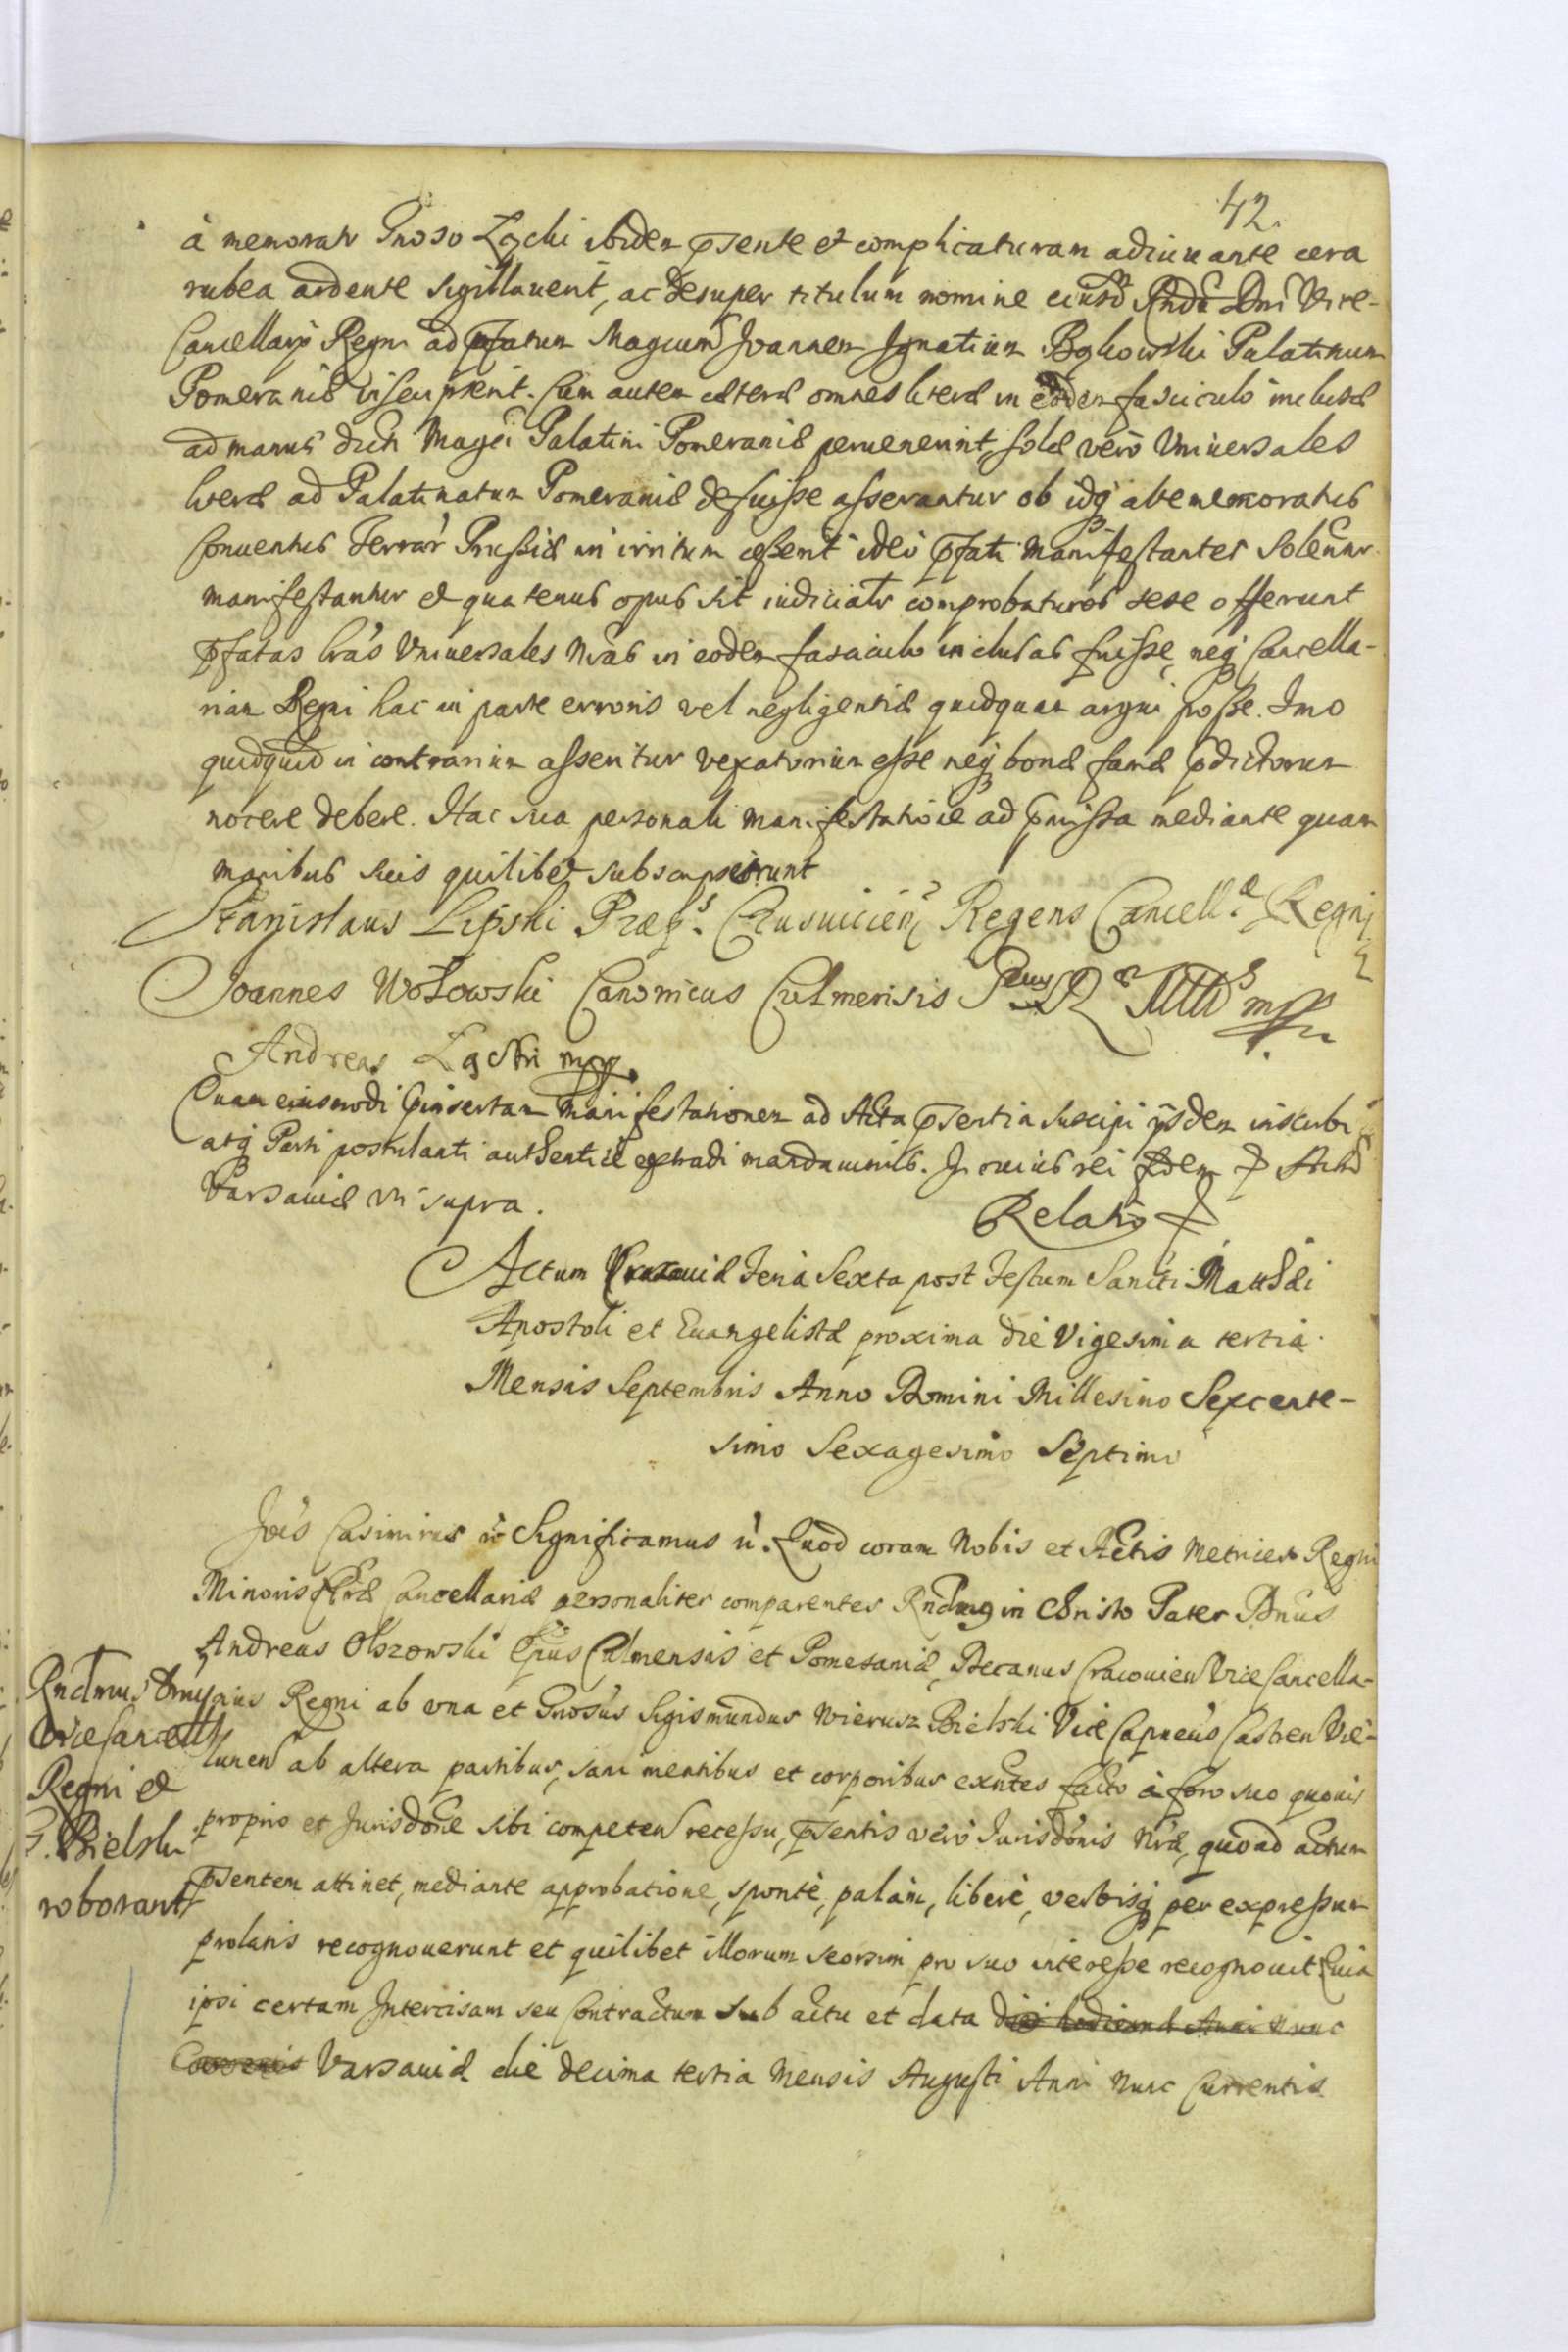 42.
à memorato Gnoso Łącki ibidem pñente et complicaturam adiuuante cera
rubea ardente sigillauerit, ac desuper titulum nomine eiusd Rndi Dni Vice-
Cancellarij Regni ad pfatum Magcum Joannem Ignatium Bąkowski Palatinum
Pomeraniæ inscupserit. Cum autem cæteræ omnes literæ in eodem fasciculo inclusæ
ad manus dicti Magci Palatini Pomeraniæ peruenerint, solæ verò Vniuersales
literæ ad Palatinatum Pomeraniæ defuisse asserantur ob idq altememoratus
Conuentus Terrar Prussiæ in irritum cesserit ideò pfati Manifestantes solenr
manifestantur et quatenus opus sit iudicialr comprobaturos sese offerunt
pfatas lrás Vniuersales Nrás in eodem fasciculo inclusas fuisse, neq Cancella-
riam Regni hac in parte erroris vel negligentiæ quidquam argui posse. Imo
quidquid in contrarium asseritur vexatorium esse neq bonæ famæ pdictorum
nocere debere. Hac sua personali manifestatioe ad pmissa mediante quam
manibus suis quilibet subscripserunt
Stanislaus Lipski Præps. Crusuicien Regens Cancell.æ Regnj
Joannes Wołowski Canonicus Culmensis
Andreas Łącki mpp
Quam eiusmodi pinsertam Manifestationem ad Acta pñentia suscipi ijsdem inscribi
atq Parti postulanti authenticè extradi mandauimus. In cuius rei fidem p Actũ
Varsauiæ vt supra.
Relatio p
Actum Varsauiæ Feriâ Sexta post Festum Sancti Matthæi
Apostoli et Euangelistæ proxima die Vigesima tertia
Mensis Septembris Anno Domini Millesimo Sexcente-
simo Sexagesimo Septimo
Joës Casimirus Significamus Quod coram Nobis et Actis Metrices Regni
Minoris Cancellariæ personaliter comparentes Rndmus in Christo Pater Dnus
Andreas Olszowski Epus Culmensis et Pomesaniæ, Decanus Cracouien Vice Cancella-
rius Regni ab vna et Gnosus Sigismundus Wierusz Bielski Vice Capneus Castren Vie-
lunen ab altera partibus, sani mentibus et corporibus exntes facto à foro suo quouis
proprio et Jurisdone sibi competen recessu, pñentis verò Jurisdonis Nræ, quoad actum
pñentem attinet, mediante approbatione, spontè, palàm, liberè, verbisq per expressum
prolatis recognouerunt et quilibet illorum seorsim pro suo interesse recognouit. Quia
ipsi certam Intercisam seu Contractum sub actu et data diei hodiernæ Anni nunc
Currentis Varsauiæ die decima tertia Mensis Augusti Anni nunc Currentis
Rndmus
Vicecancell
Regni et
G. Bielski
roborant